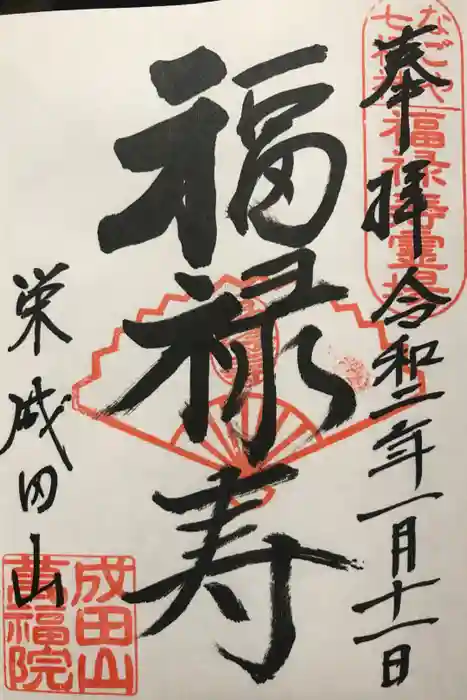 なごや
七福神
福禄寿霊場
奉拝
令和二年一月十一日
福禄寿
栄成田山
成田山
萬福院